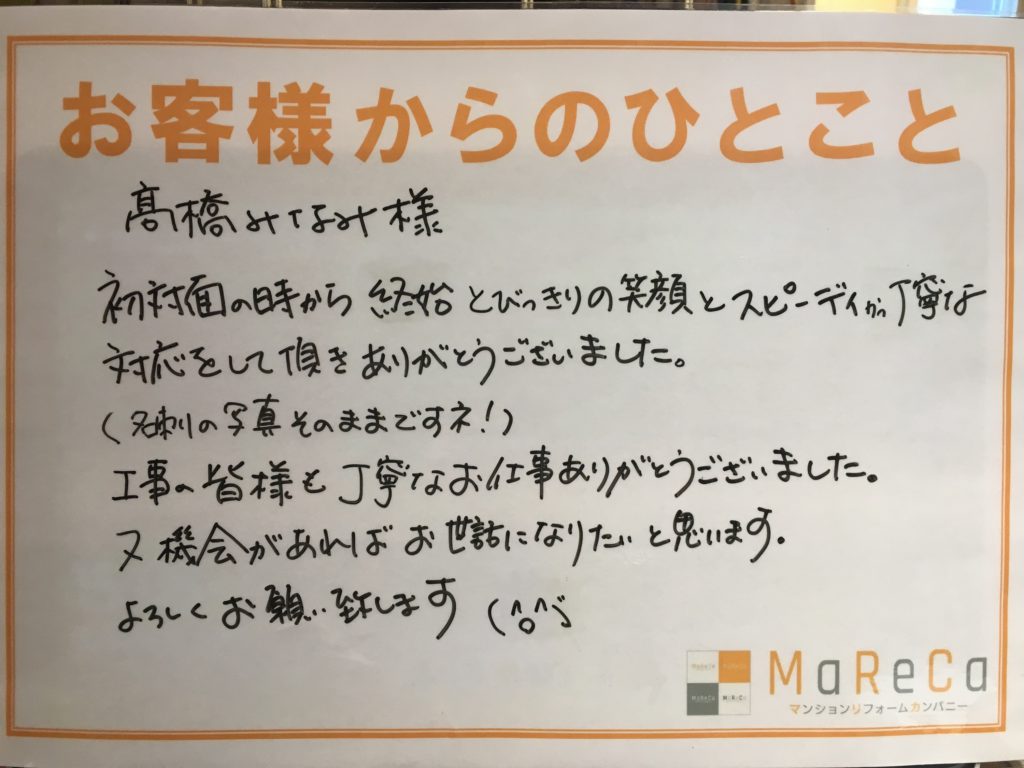 お客様からのひとこと
髙橋みなみ様
初対面の時から 終始 とびっきりの笑顔とスピーディかつ丁寧な
対応をして頂きありがとうございました。
(名刺の写真そのままですネ!)
工事の皆様も丁寧なお仕事ありがとうございました。
又機会があればお世話になりたいと思います。
よろしくお願い致します (^o^)
MaReCa
マンションリフォームカンパニー